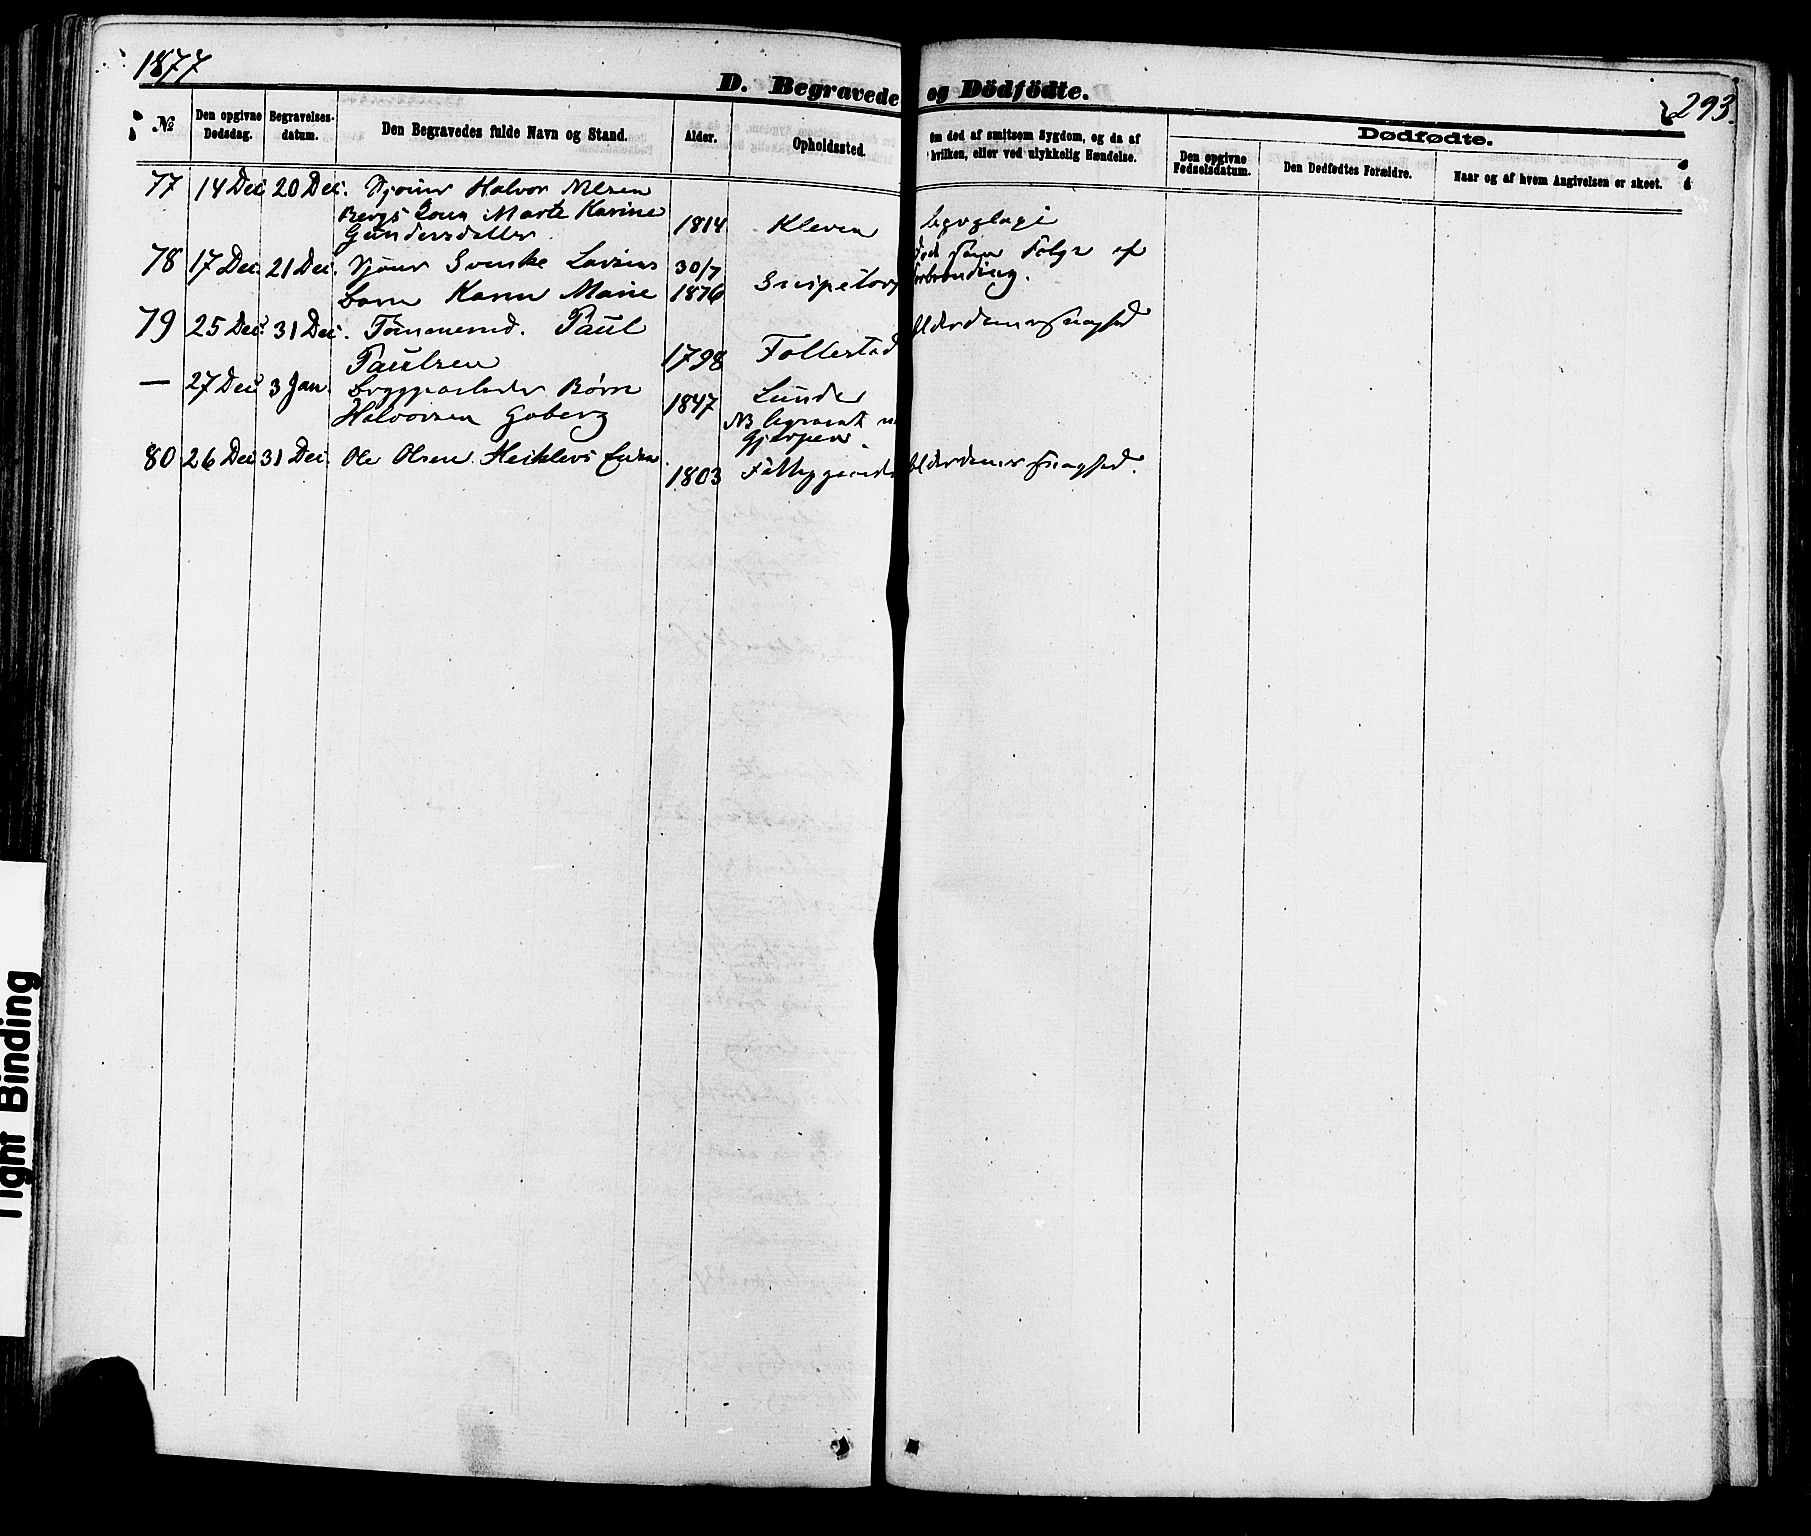 1877
D. Begravede og Dödfödte.
293.
№
Den opgivne Dødsdag.
Begravelsesdatum.
Den Begravedes fulde Navn og Stand.
Alder.
Opholdssted.
Om død af smitsom Sygdom, og da af hvilken, eller ved ulykkelig Hændelse.
Dødfødte.
Den opgivne Fødselsdatum.
Den Dødfødtes Forældre.
Naar og af hvem Angivelsen er skeet.
77 14 Dec 20 Dec. Halvor Nilsen
Bergs Kona Marte Karine
Gundersdatter 1814 Kleven
78 17 Dec. 21 Dec. Svenke 30/7 Død som Følge af
barn Karen Marie 1876 forbrænding.
79 25 Dec. 31 Dec. Tømmermd. Paul Alderdomssvaghed
Paulsen 1798 Follestad
— 27 Dec 3 Jan. Børre Lunde
Halvorsen Goberg 1847 NB begravet
Gjerpen.
80 26 Dec 31 Dec. Ole Olsen Alderdomssvaghed.
1803
Tight Binding